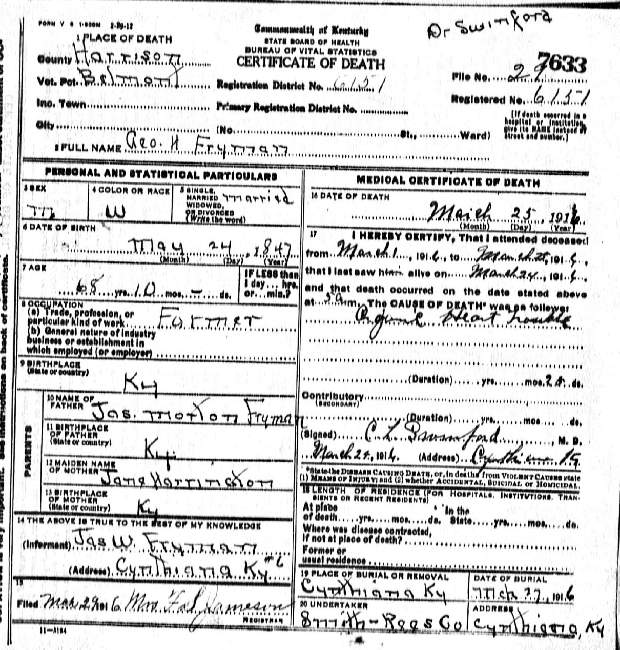 FORM V S 1-500M 2-20-12
Dr Swinford
Commonwealth of Kentucky
STATE BOARD OF HEALTH
BUREAU OF VITAL STATISTICS
CERTIFICATE OF DEATH
1 PLACE OF DEATH
County Harrison
Vot. Pct. Belmont
Inc. Town
City
Registration District No. 6151
Primary Registration District No.
(No. St., Ward)
7633
File No. 22
Registered No. 6151
[If death occurred in a hospital or institution, give its NAME instead of street and number.]
2 FULL NAME Geo. H. Fryman
PERSONAL AND STATISTICAL PARTICULARS
3 SEX m
4 COLOR OR RACE W
5 SINGLE, MARRIED WIDOWED, OR DIVORCED (Write the word) married
6 DATE OF BIRTH
May 24, 1847
(Month) (Day) (Year)
7 AGE
68 yrs. 10 mos. - ds.
IF LESS than 1 day... hrs. or... min.?
8 OCCUPATION
(a) Trade, profession, or particular kind of work Farmer
(b) General nature of industry business or establishment in which employed (or employer)
9 BIRTHPLACE
(State or country) Ky
PARENTS
10 NAME OF FATHER Jas. Morton Fryman
11 BIRTHPLACE OF FATHER (State or country) Ky.
12 MAIDEN NAME OF MOTHER Jane Harrington
13 BIRTHPLACE OF MOTHER (State or country) Ky
14 THE ABOVE IS TRUE TO THE BEST OF MY KNOWLEDGE
(Informant) Jas W. Fryman
(Address) Cynthiana Ky #6
15
Filed Mar 29 1916 Mrs. Jameson
REGISTRAR
11-3184
MEDICAL CERTIFICATE OF DEATH
16 DATE OF DEATH
March 25, 1916
(Month) (Day) (Year)
17 I HEREBY CERTIFY, That I attended deceased
from March 1, 1916, to March, 1916,
that I last saw him alive on March 24, 1916,
and that death occurred on the date stated above
at 5 a m. The CAUSE OF DEATH* was as follows:
Heart trouble
(Duration) yrs. mos. 25 ds.
Contributory
(SECONDARY)
(Duration) yrs. mos. ds.
(Signed) C. L. Swinford, M. D.
March 25, 1916 (Address) Cynthiana Ky
*State the DISEASE CAUSING DEATH, or, in deaths from VIOLENT CAUSES state (1) MEANS OF INJURY; and (2) whether ACCIDENTAL, SUICIDAL or HOMICIDAL.
18 LENGTH OF RESIDENCE (FOR HOSPITALS, INSTITUTIONS, TRANSIENTS OR RECENT RESIDENTS)
At place of death yrs. mos. ds. In the State yrs. mos. ds.
Where was disease contracted, if not at place of death?
Former or usual residence
19 PLACE OF BURIAL OR REMOVAL
Cynthiana Ky
DATE OF BURIAL
Mch 27, 1916
20 UNDERTAKER
Smith-Rees Co
ADDRESS
Cynthiana, Ky